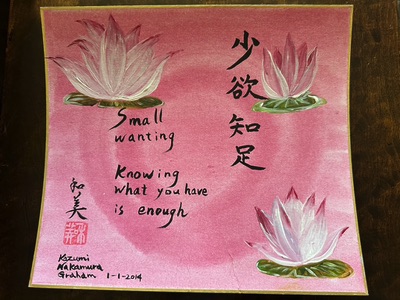 少欲知足
Small
wanting
Knowing
what you have
is enough
知美
Kazumi
Nakamura
Graham 1-1-2014